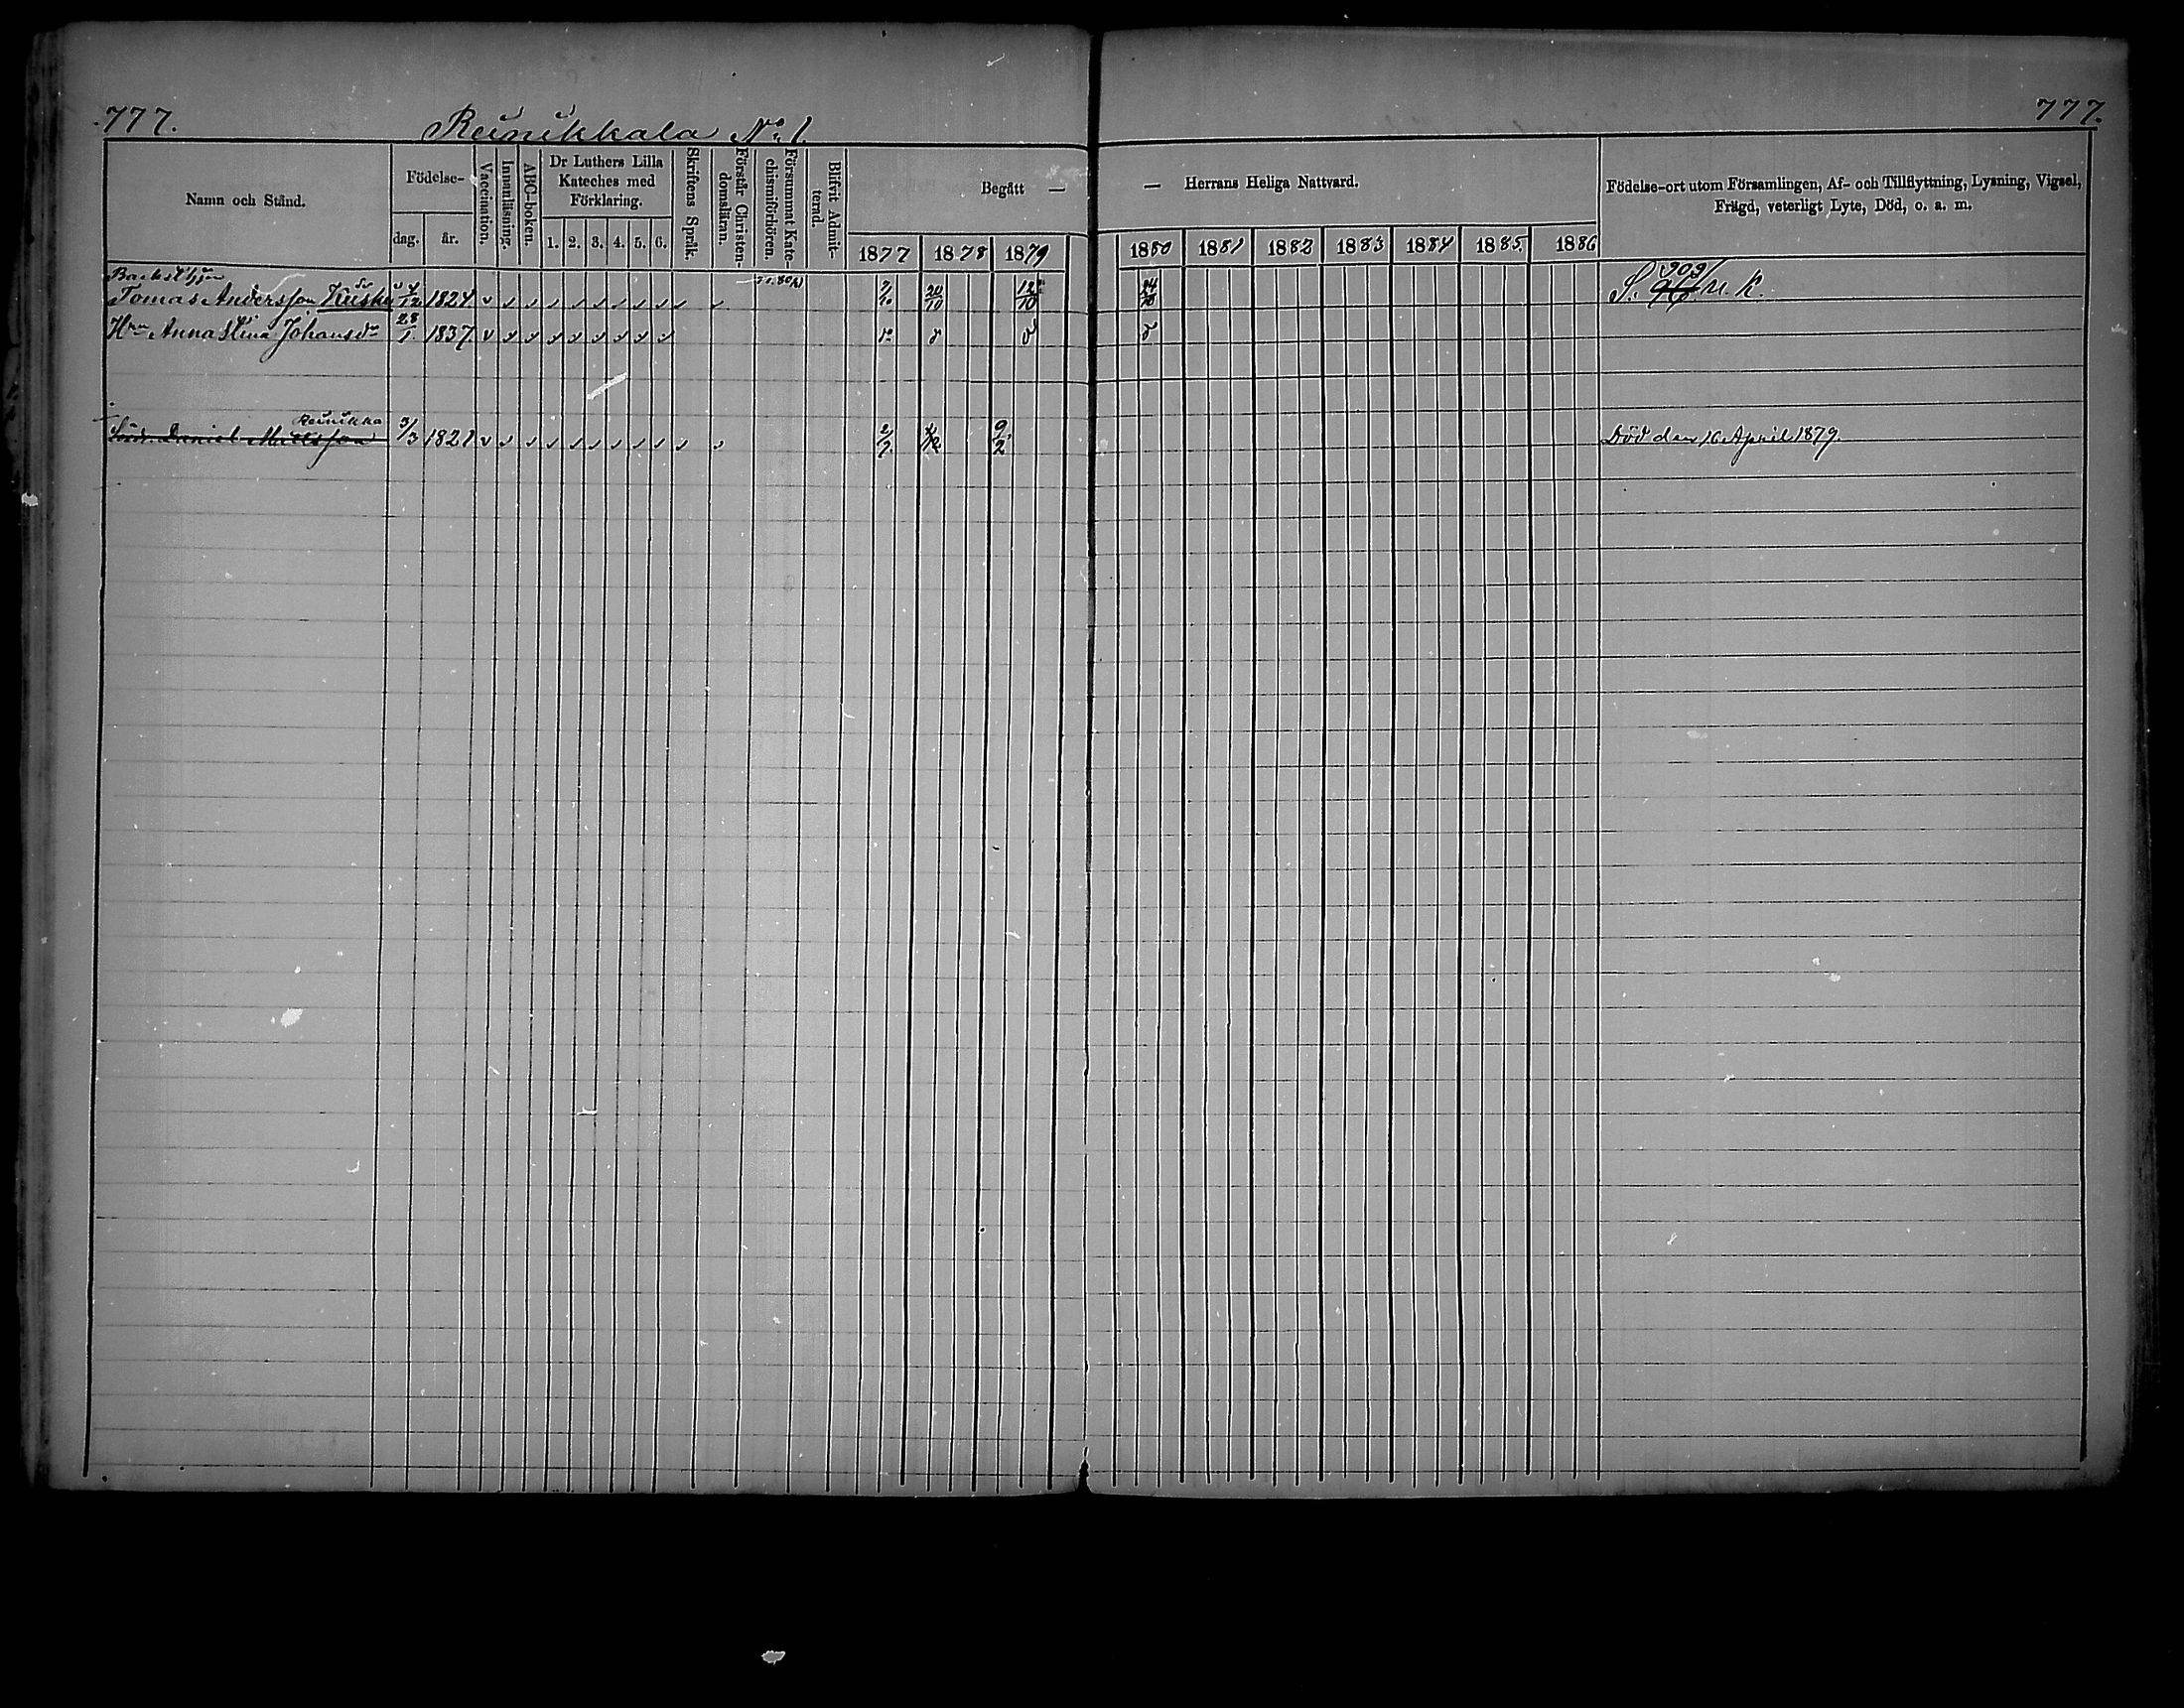 777.
Reinikkala No 1.
777.
Namn och Stånd.
Födelse-
dag.
år.
Vaccination.
Innanläsning.
ABC-boken.
Dr Luthers Lilla
Kateches med
Förklaring.
1. 2. 3. 4. 5. 6.
Skriftens Språk.
Förstår Christen-
domsläran.
Försummat Kate-
chismiförhören.
Blifvit Admit-
terad.
Begått —
— Herrans Heliga Nattvard.
1877 1878 1879
1880 1881 1882 1883 1884 1885. 1886
Födelse-ort utom Församlingen, Af- och Tillflyttning, Lysning, Vigsel,
Frägd, veterligt Lyte, Död, o. a. m.
Tomas Andersson 1824 v 7/10 20/10 12/10 24/10 S. 96 909/n. K.
Hru Anna Stina Johansdr 28/1. 1837. v
Reinikka
Daniel Mattsson 3/3 1821 v 2/7 9/2 Död den 16 April 1879.